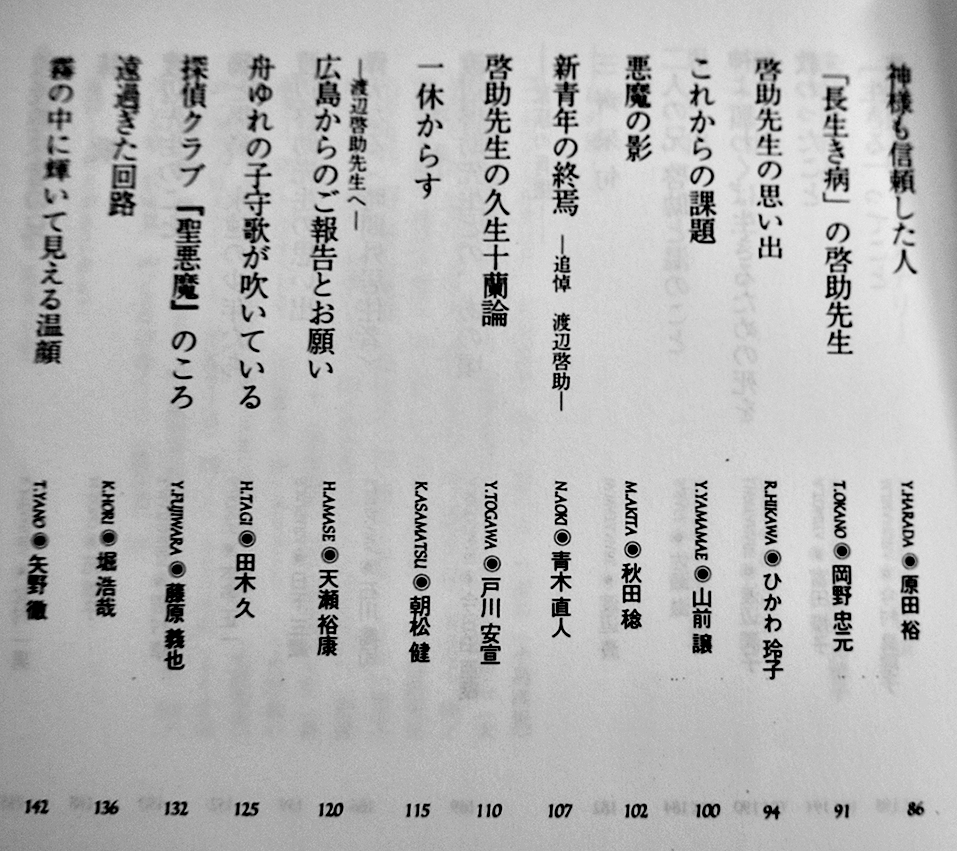 神様も信頼した人 Y.HARADA ◉ 原田 裕 86
「長生き病」の啓助先生 T.OKANO ◉ 岡野 忠元 91
啓助先生の思い出 R.HIKAWA ◉ ひかわ 玲子 94
これからの課題 Y.YAMAMAE ◉ 山前 譲 100
悪魔の影 M.AKITA ◉ 秋田 稔 102
新青年の終焉 ―追悼 渡辺啓助― N.AOKI ◉ 青木 直人 107
啓助先生の久生十蘭論 Y.TOGAWA ◉ 戸川 安宣 110
一休からす K.ASAMATSU ◉ 朝松 健 115
―渡辺啓助先生へ―
広島からのご報告とお願い H.AMASE ◉ 天瀬 裕康 120
舟ゆれの子守歌が吹いている H.TAGI ◉ 田木 久 125
探偵クラブ『聖悪魔』のころ Y.FUJIWARA ◉ 藤原 義也 132
遠過ぎた回路 K.HORI ◉ 堀 浩哉 136
霧の中に輝いて見える温顔 T.YANO ◉ 矢野 徹 142